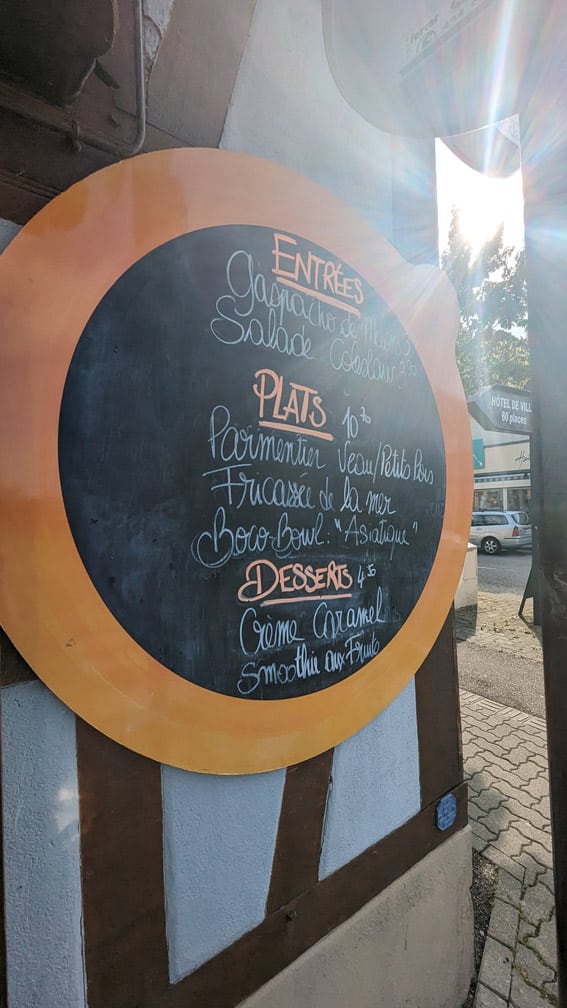 ENTRÉES
Gaspacho de Melon
Salade Coleslaw
PLATS 10,70
Parmentier Veau/Petits Pois
Fricassée de la mer
Boco-Bowl: "Asiatique"
DESSERTS 4,35
Crème Caramel
Smoothie aux Fruits
HÔTEL DE VILL
60 places